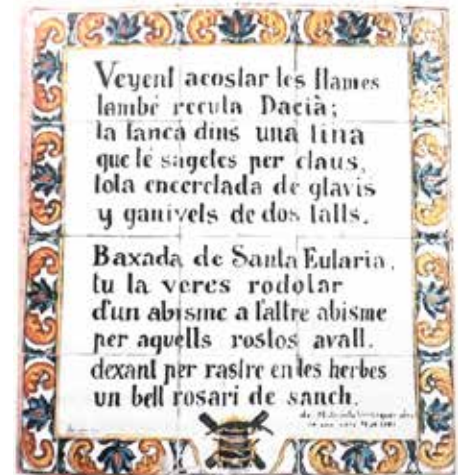 Veyent acostar les flames
també recula Dacià;
la tancà dins una tina
que té sagetes per claus,
tota encerclada de glavis
y ganivets de dos talls.
Baxada de Santa Eularia,
tu la veres rodolar
d'un abisme a l'altre abisme
per aquells rostos avall.
dexant per rastre en les herbes
un bell rosari de sanch.
de M. Jacinto Verdaguer